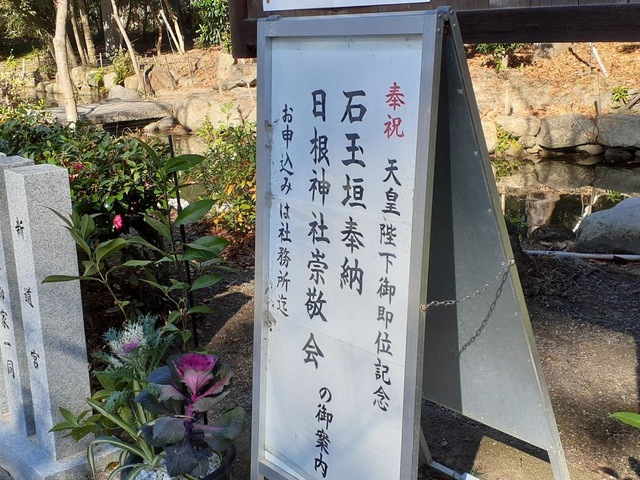 奉祝 天皇陛下御即位記念
石玉垣奉納
日根神社崇敬会の御案内
お申込みは社務所迄